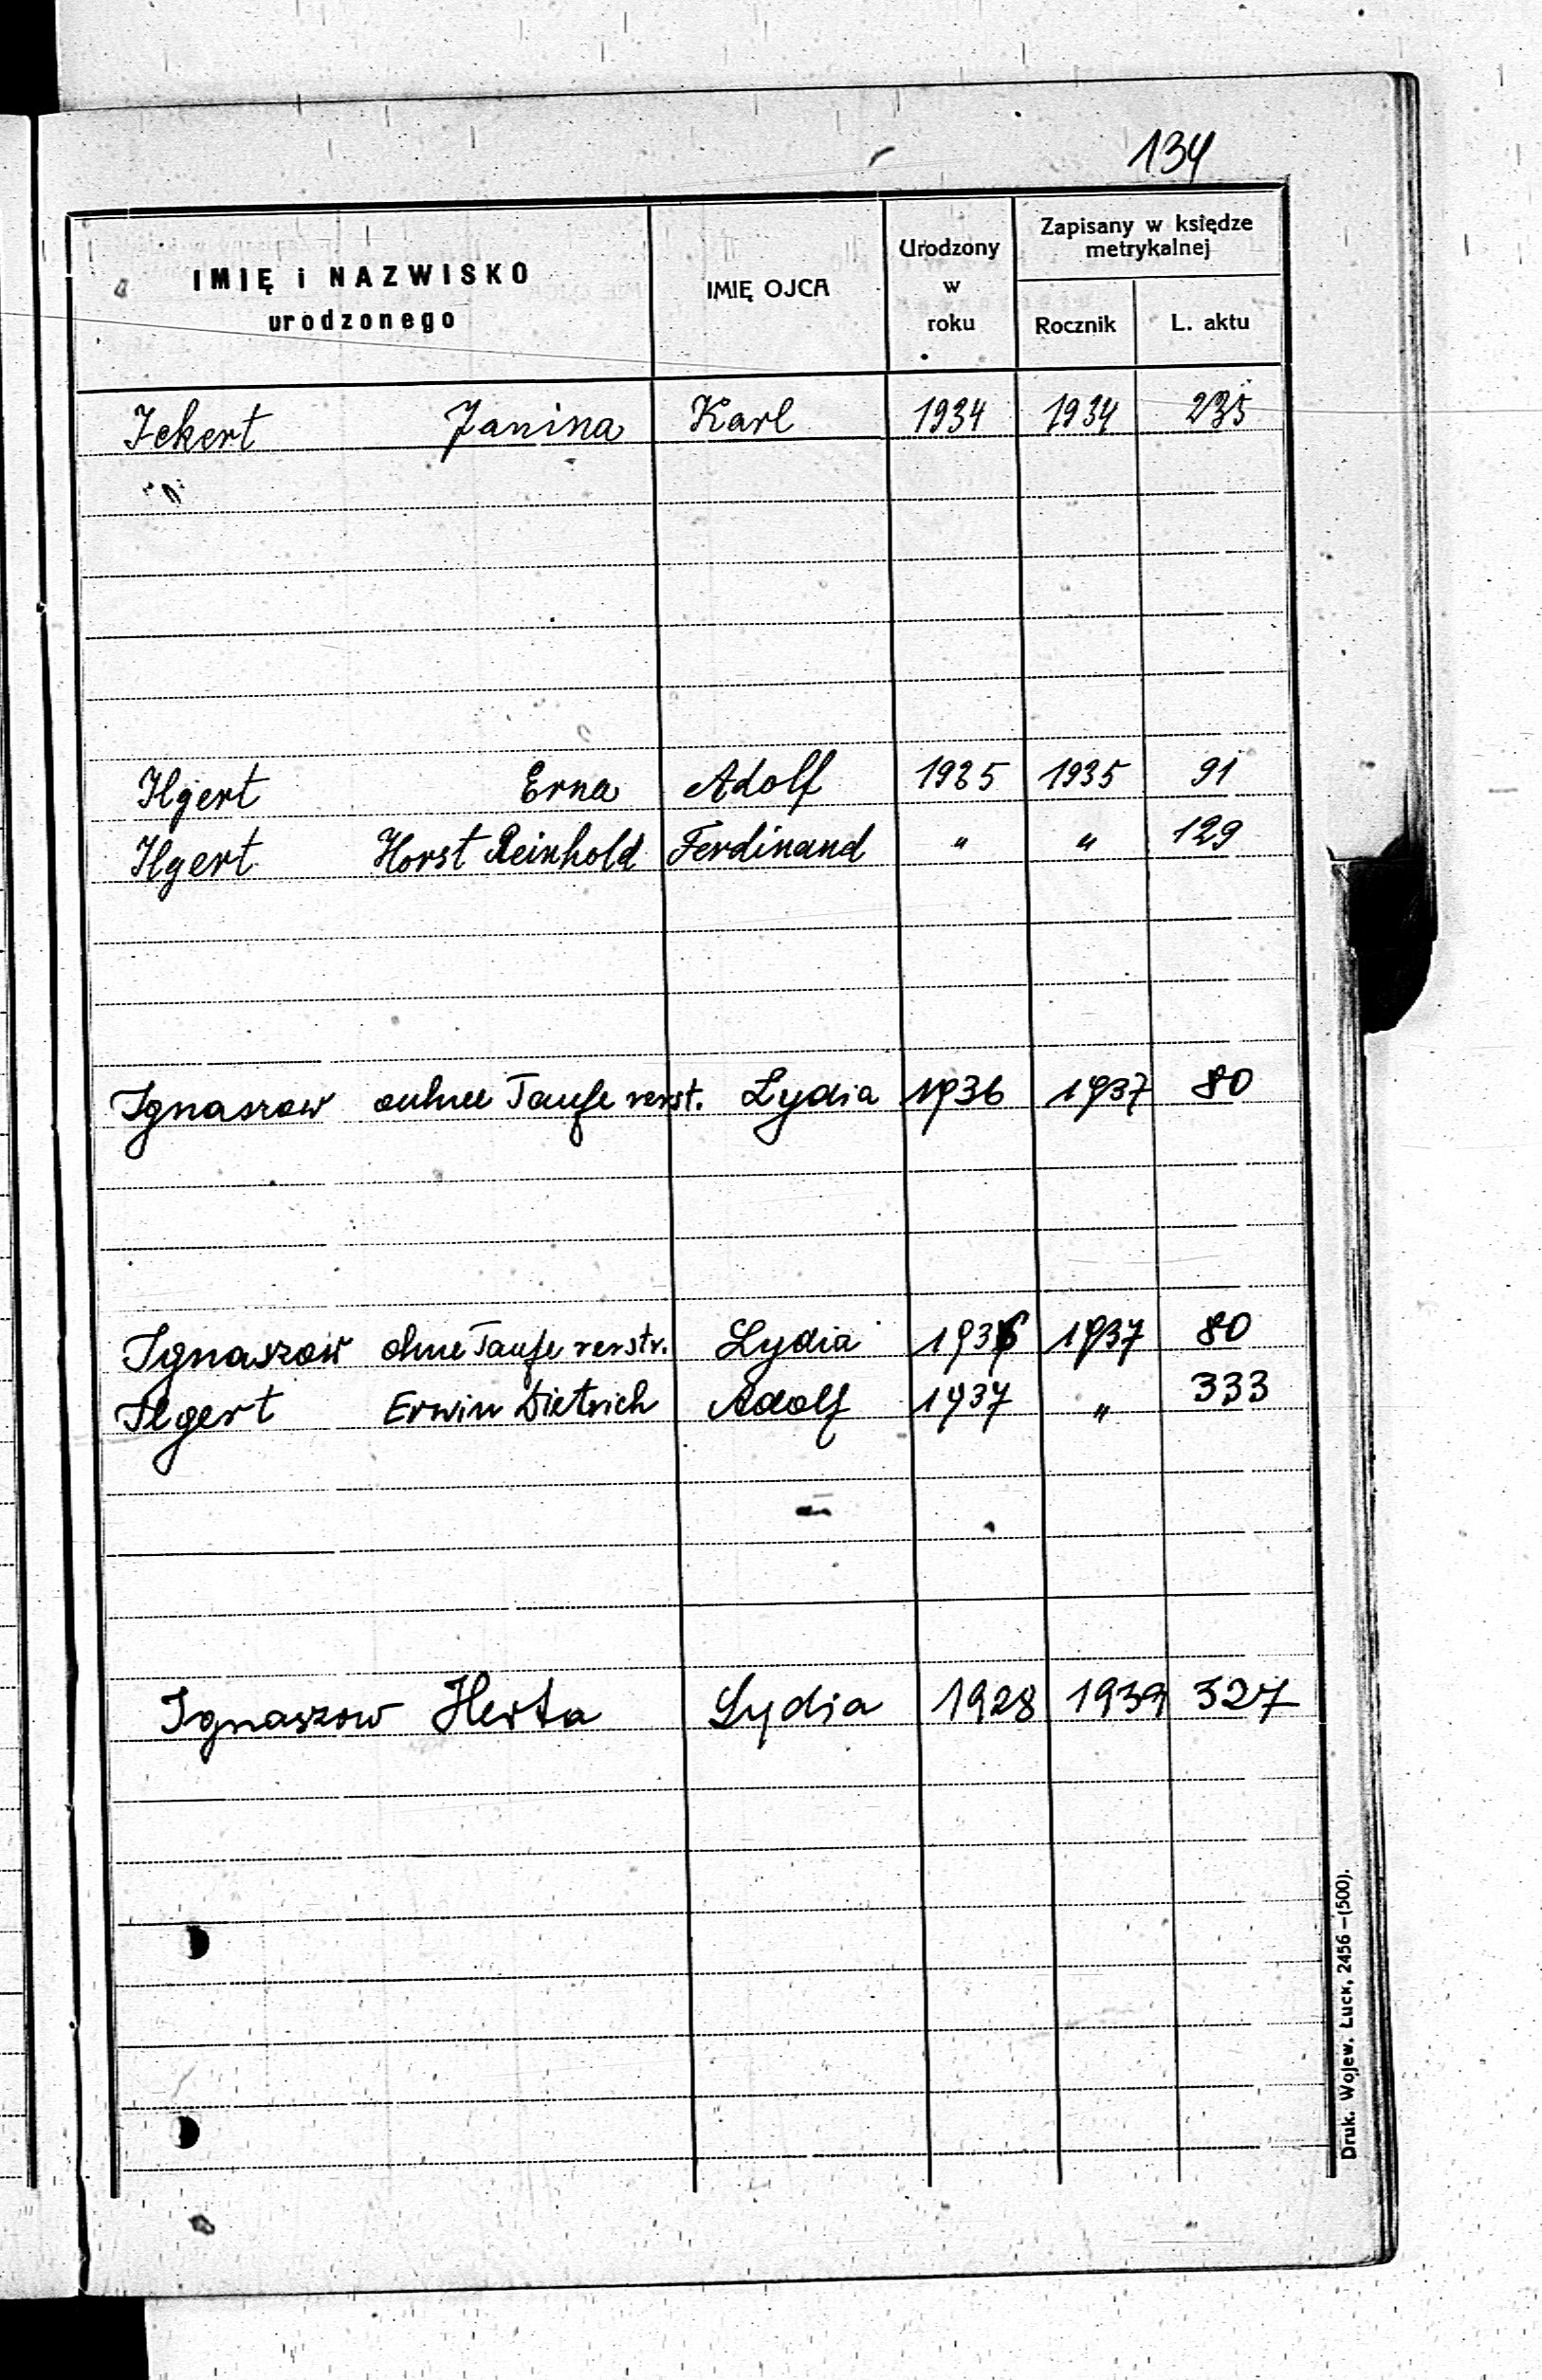 134
IMIĘ i NAZWISKO urodzonego IMIĘ OJCA Urodzony w roku Zapisany w księdze metrykalnej Rocznik L. aktu
Ickert Janina Karl 1934 1934 235
Ilgert Erna Adolf 1935 1935 91
Ilgert Horst Reinhold Ferdinand " " 129
Ignaszow Taufe verst. Lydia 1936 1937 80
Ignaszow ohne Taufe verstr. Lydia 1936 1937 80
Ilgert Erwin Dietrich Adolf 1937 " 333
Ignaszow Herta Lydia 1928 1939 327
Druk. Wojew. Łuck, 2456—(500).